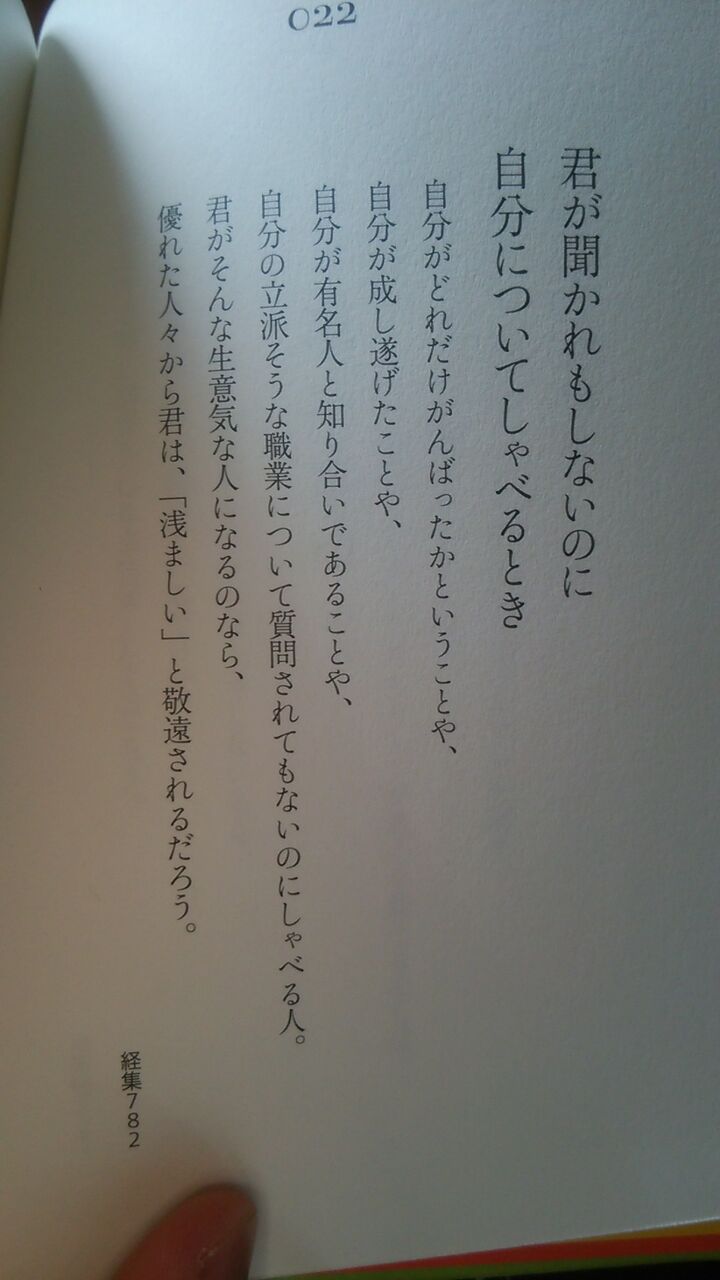 022
君が聞かれもしないのに
自分についてしゃべるとき
自分がどれだけがんばったかということや、
自分が成し遂げたことや、
自分が有名人と知り合いであることや、
自分の立派そうな職業について質問されてもないのにしゃべる人。
君がそんな生意気な人になるのなら、
優れた人々から君は、「浅ましい」と敬遠されるだろう。
経集782